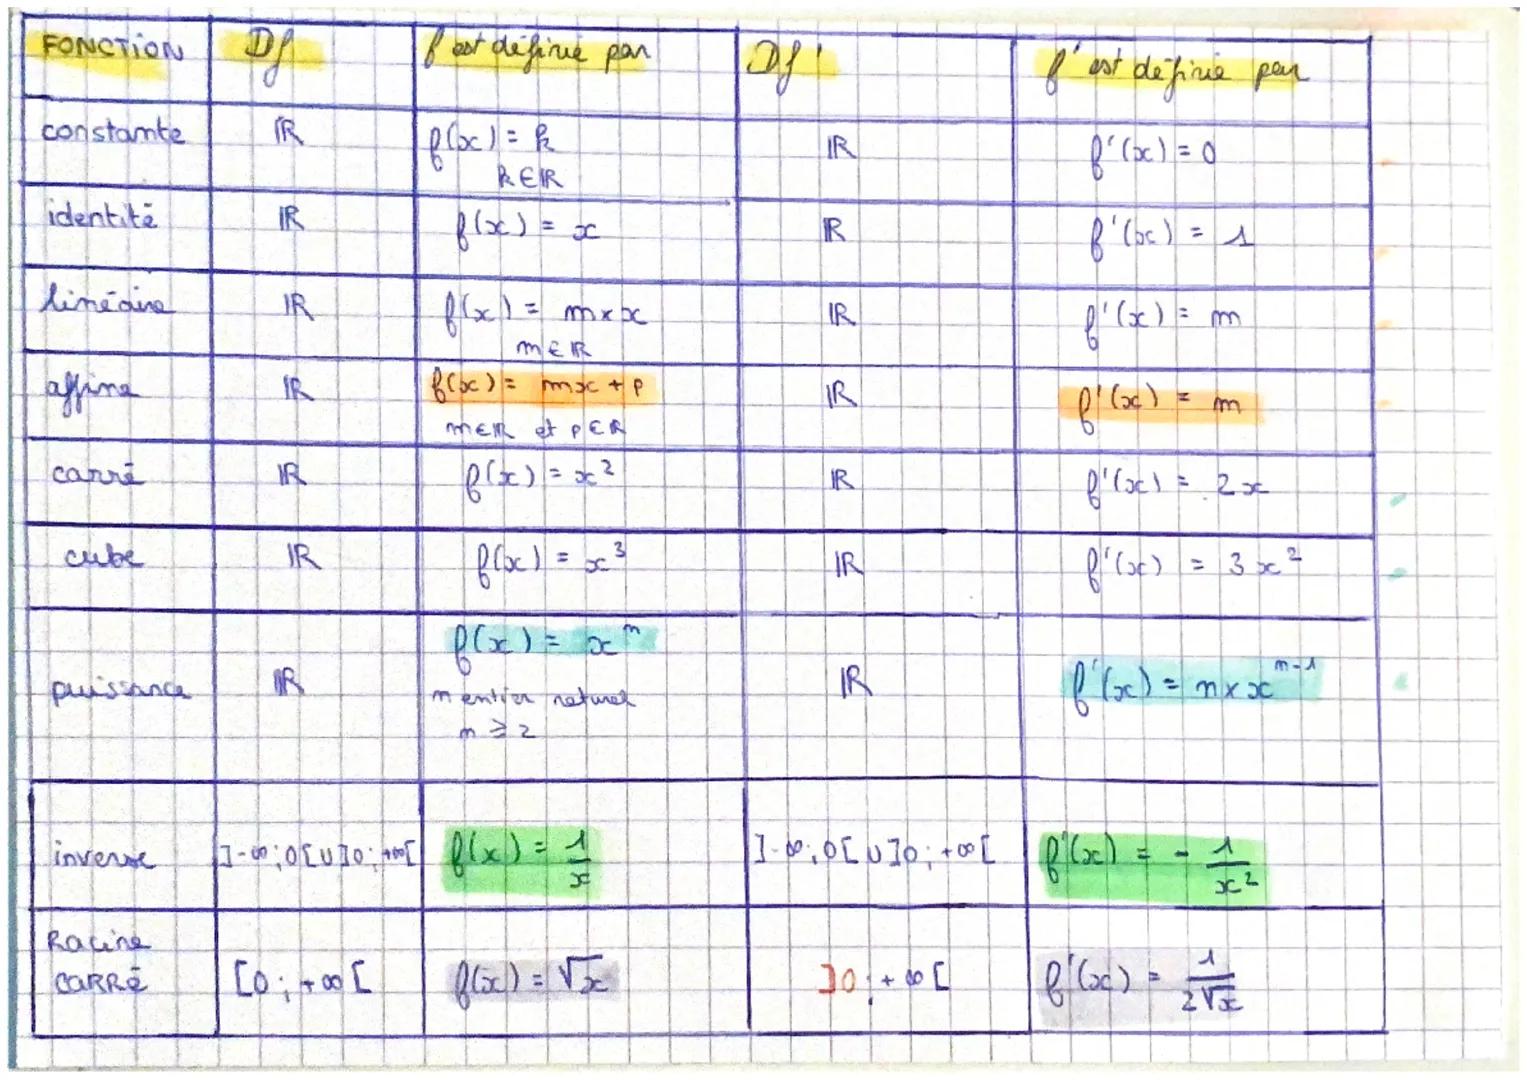 FONCTION Df f est définie par Df' f' est définie par
constante ℝ f(x) = k ℝ f'(x) = 0
k ∈ ℝ
identité ℝ f(x) = x ℝ f'(x) = 1
linéaire ℝ f(x) = m × x ℝ f'(x) = m
m ∈ ℝ
affine ℝ f(x) = mx + p ℝ f'(x) = m
m ∈ ℝ et p ∈ ℝ
carré ℝ f(x) = x² ℝ f'(x) = 2x
cube ℝ f(x) = x³ ℝ f'(x) = 3x²
puissance ℝ f(x) = xⁿ ℝ f'(x) = n × xⁿ⁻¹
n entier naturel
n ≥ 2
inverse ]-∞;0[∪]0;+∞[ f(x) = 1/x ]-∞;0[∪]0;+∞[ f'(x) = - 1/x²
Racine
CARRÉ [0;+∞[ f(x) = √x ]0;+∞[ f'(x) = 1/2√x